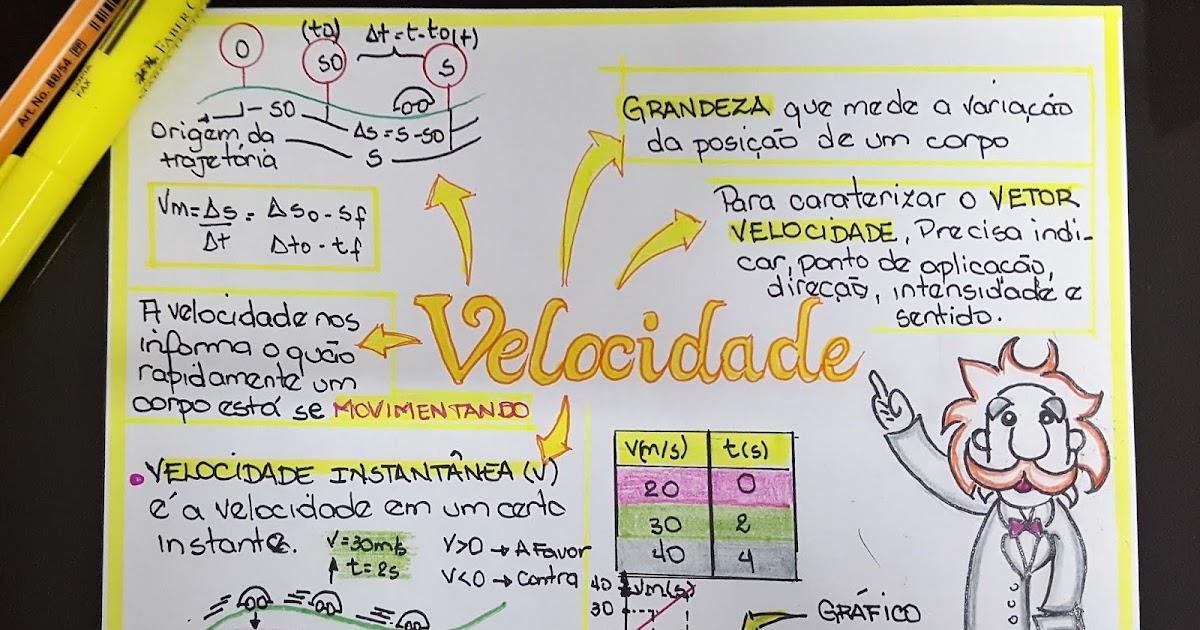 Art. No. 88/54
FABER C
0
(t0)
S0
Δt = t - t0
(t)
S
S0
Origem da
trajetória
Δs = S - S0
S
Vm = Δs = ΔS0 - Sf
Δt Δt0 - tf
GRANDEZA que mede a variação
da posição de um corpo
Para caraterizar o VETOR
VELOCIDADE, Precisa indi-
car, ponto de aplicação,
direção, intensidade e
sentido.
A velocidade nos
informa o quão
rapidamente um
corpo está se MOVIMENTANDO
Velocidade
VELOCIDADE INSTANTÂNEA (V)
é a velocidade em um certo
instante.
V = 30m/s
t = 2s
V>0 → A Favor
V<0 → Contra
V(m/s) t(s)
20 0
30 2
40 4
40 Vm(s)
30
GRÁFICO